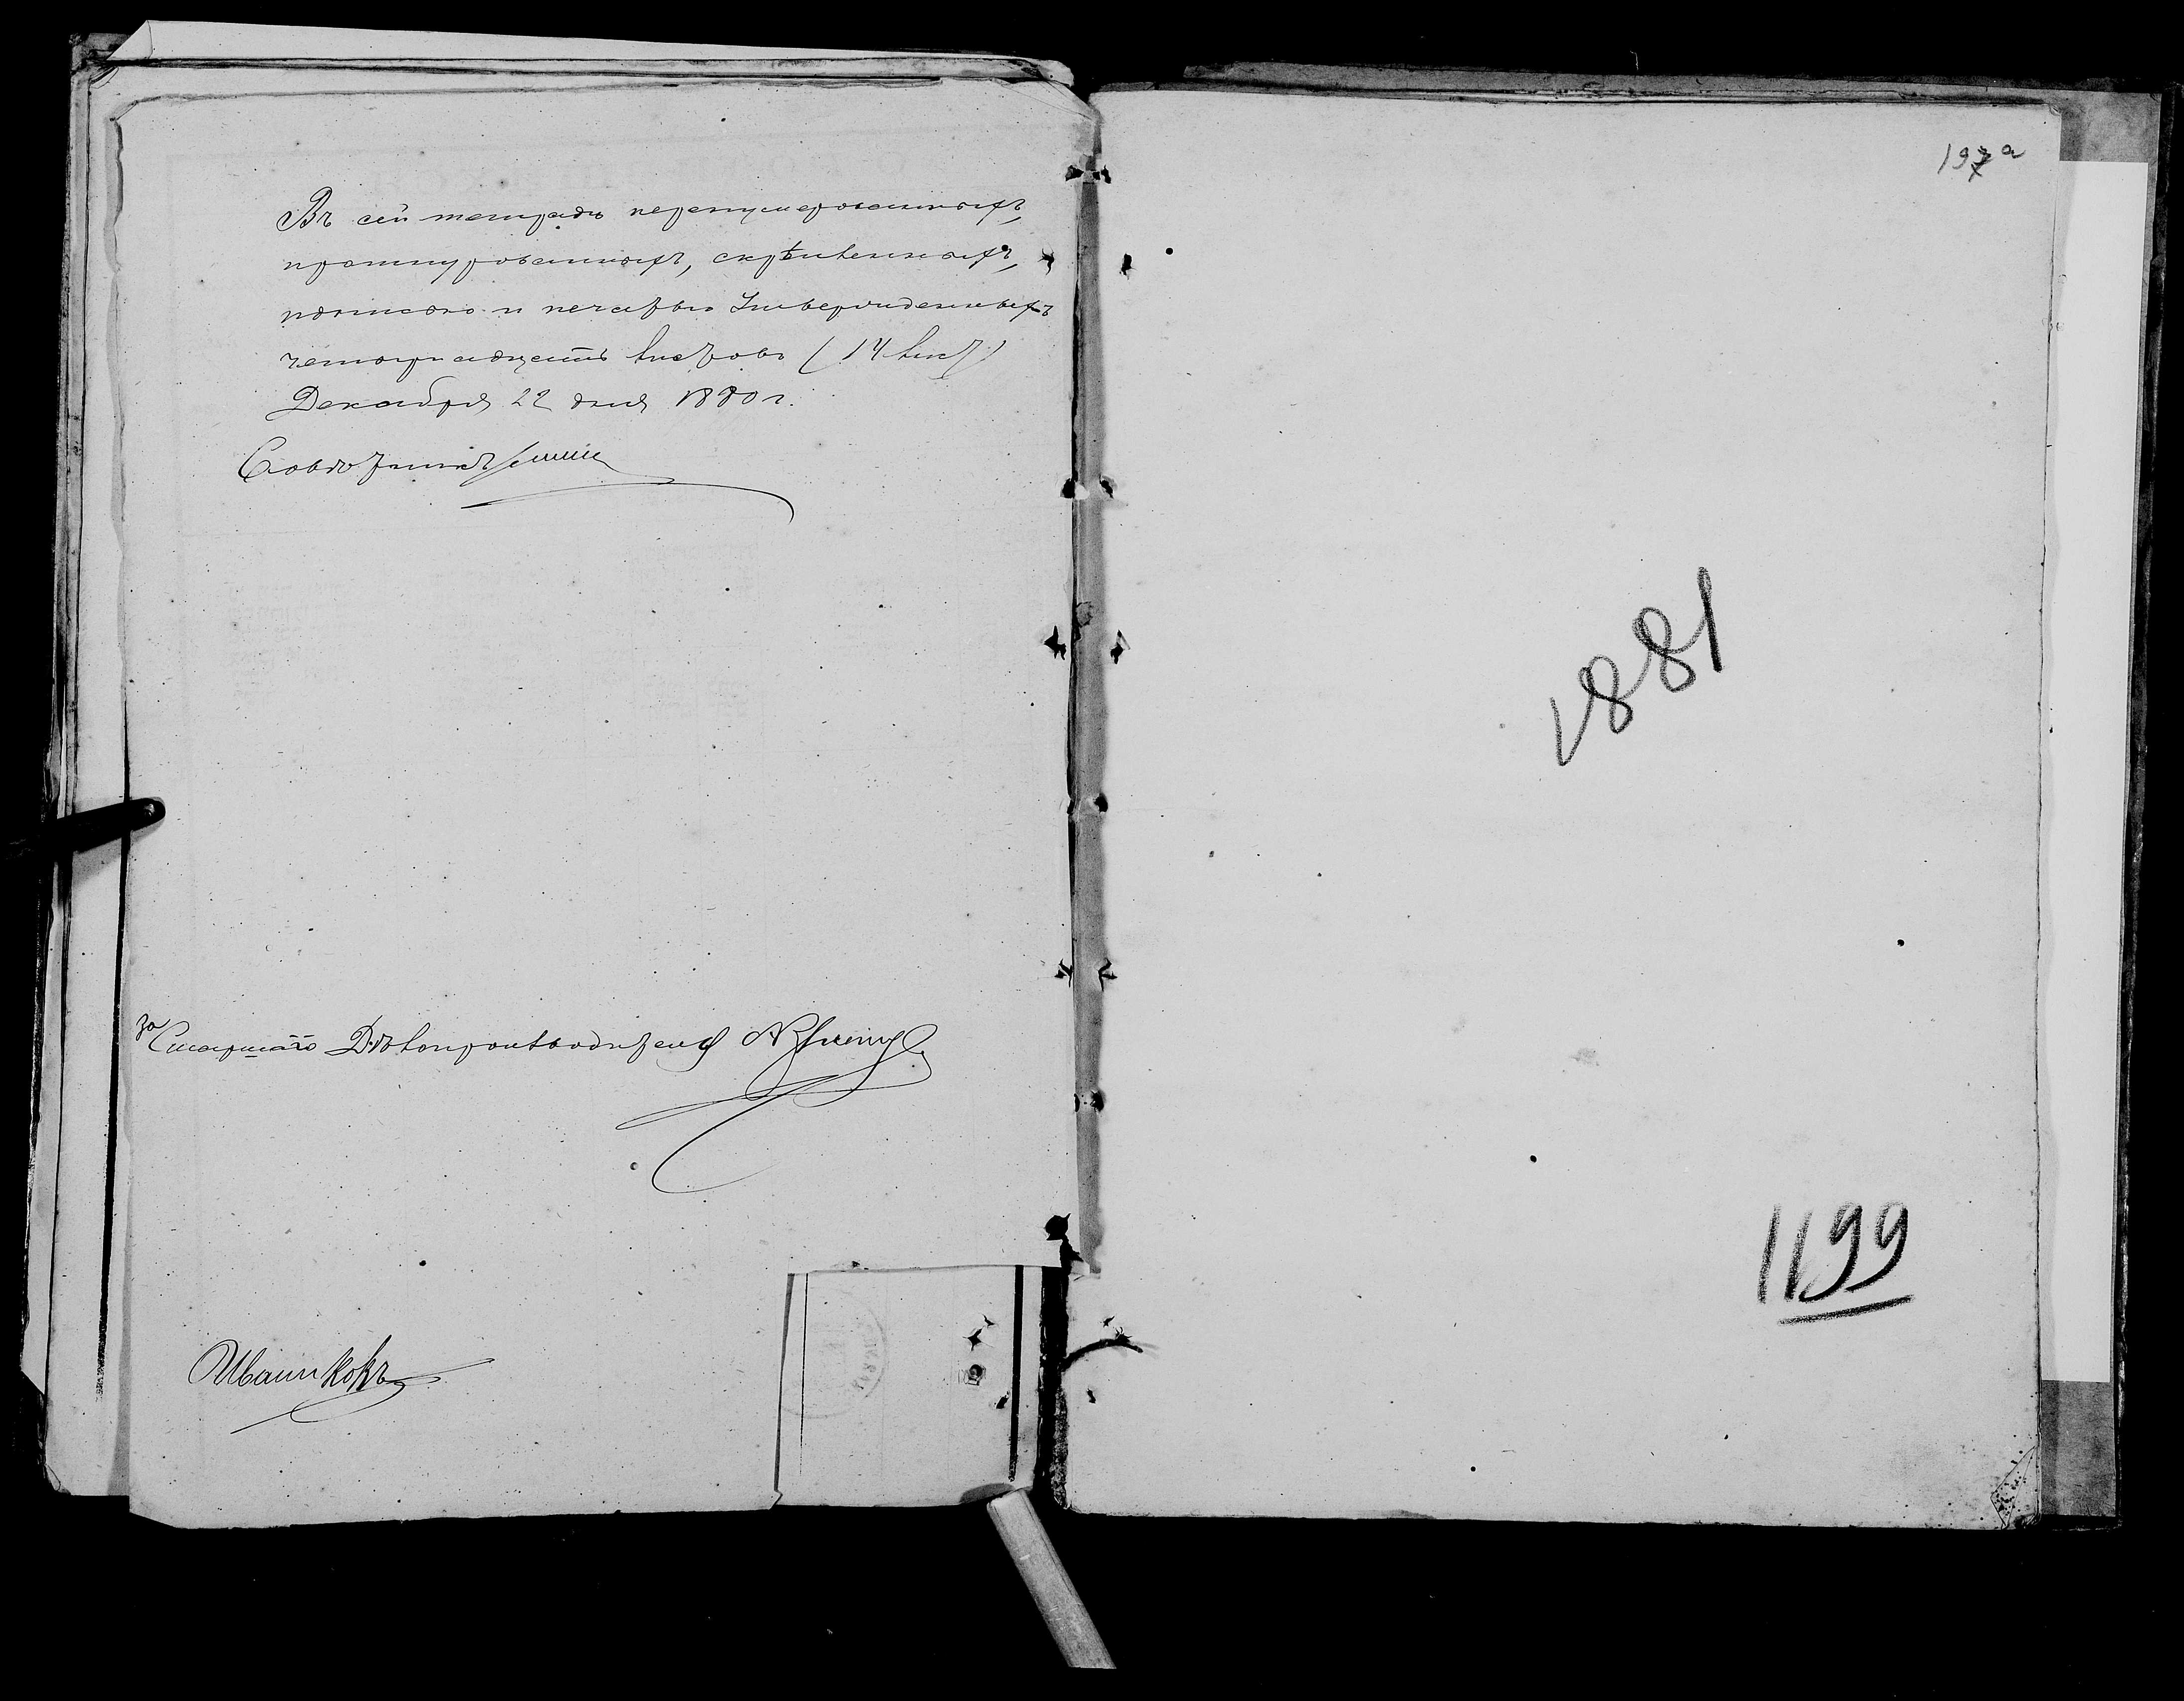 Въ сей тетради перенумерованныхъ,
прошнурованныхъ, скрѣпленныхъ,
подписью и печатью Утвержденныхъ
четырнадцать листовъ (14 лист)
Декабря 22 дня 1880 г.
Совѣтникъ
за Старшаго Дѣлопроизводителя
Ивашковъ
197 а
1881
1199